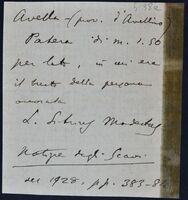 Avella (prov. d'Avellino)
Patera di m. 1.50
per lato, in cui era
il busto della persona
onorata
Notizie degli Scavi
1928. pp. 383-